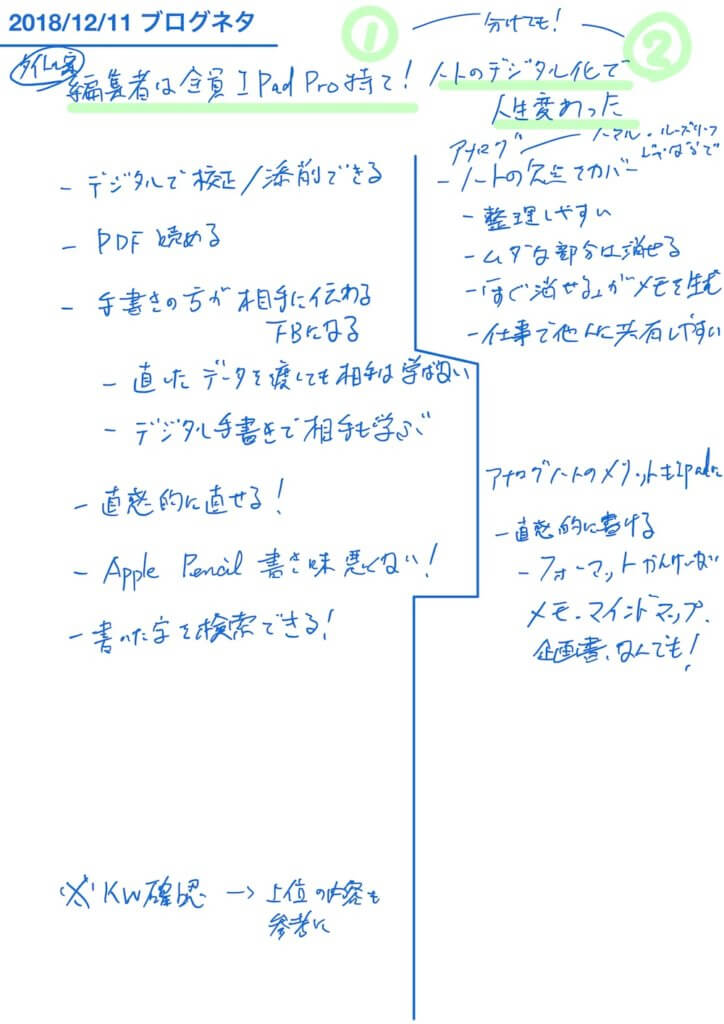 2018/12/11 ブログネタ
分けても!
①
②
タイトル案
編集者は全員 iPad Pro 持て!
ノートのデジタル化で
人生変わった
- デジタルで校正/添削できる
- PDF 読める
- 手書きの方が相手に伝わる
FBになる
- 直したデータを渡しても相手は学ばない
- デジタル手書きで相手も学ぶ
- 直惑的に直せる!
- Apple Pencil 書き味悪くない!
- 書いた字を検索できる!
※KW確認 → 上位の内容も
参考に
アナログ
ノーマル・ルーズリーフ
- ノートの欠点をカバー
- 整理しやすい
- ムダな部分は消せる
- 「すぐ消せる」がメモを生む
- 仕事で他人に共有しやすい
アナログノートのメリットもiPadに
- 直惑的に書ける
- フォーマットかんけいない
メモ・マインドマップ、
企画書、なんでも!